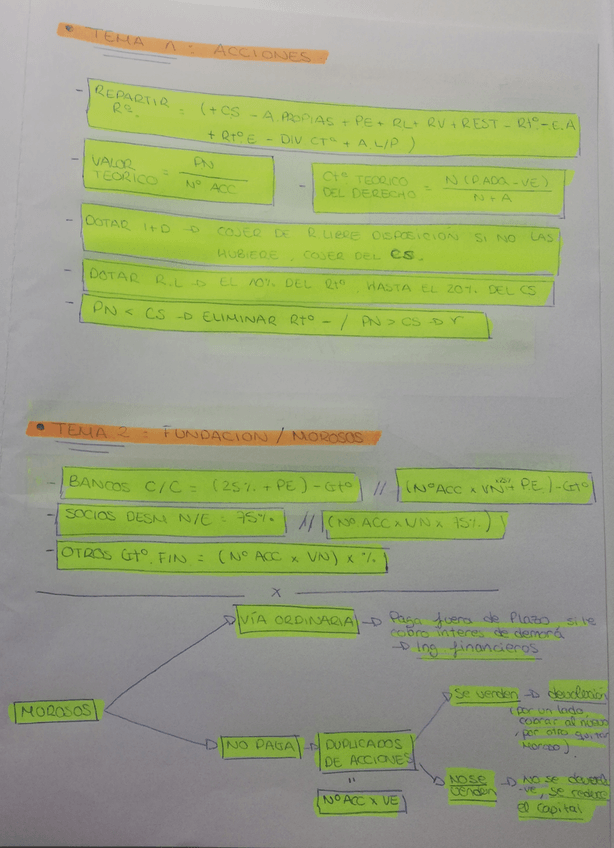 • TEMA 1 : ACCIONES
- REPARTIR Rº. = (+CS - A. PROPIAS + PE + RL + RV + REST - Rtº - E.A
+ Rtº E - DIV Ctª + A L/P )
- VALOR TEORICO = PN / Nº ACC
- Ctº TEORICO DEL DERECHO = N (PADQ - VE) / N + A
- DOTAR I+D → COJER DE R. LIBRE DISPOSICIÓN SI NO LAS
HUBIERE , COJER DEL CS.
- DOTAR R.L → EL 10% DEL Rtº , HASTA EL 20% DEL CS
- PN < CS → ELIMINAR Rtº - / PN > CS → r
• TEMA 2 : FUNDACION / MOROSOS
- BANCOS C/C = (25% + PE) - Gtº // (Nº ACC x VN + PE) - Gtº
- SOCIOS DESM N/E = 75% // (Nº ACC x VN x 75%)
- OTROS Gtº. FIN = (Nº ACC x VN) x %
x
VÍA ORDINARIA → Paga fuera de Plazo, si se
cobra interes de demora
→ Ing financieros
MOROSOS
Se venden → devolución
(por un lado
cobrar al nuevo
, por otro quitar
Moroso).
NO PAGA → DUPLICADOS
DE ACCIONES
"
Nº ACC x VE
NO SE
venden → No se
-ve, se reduce
el capital